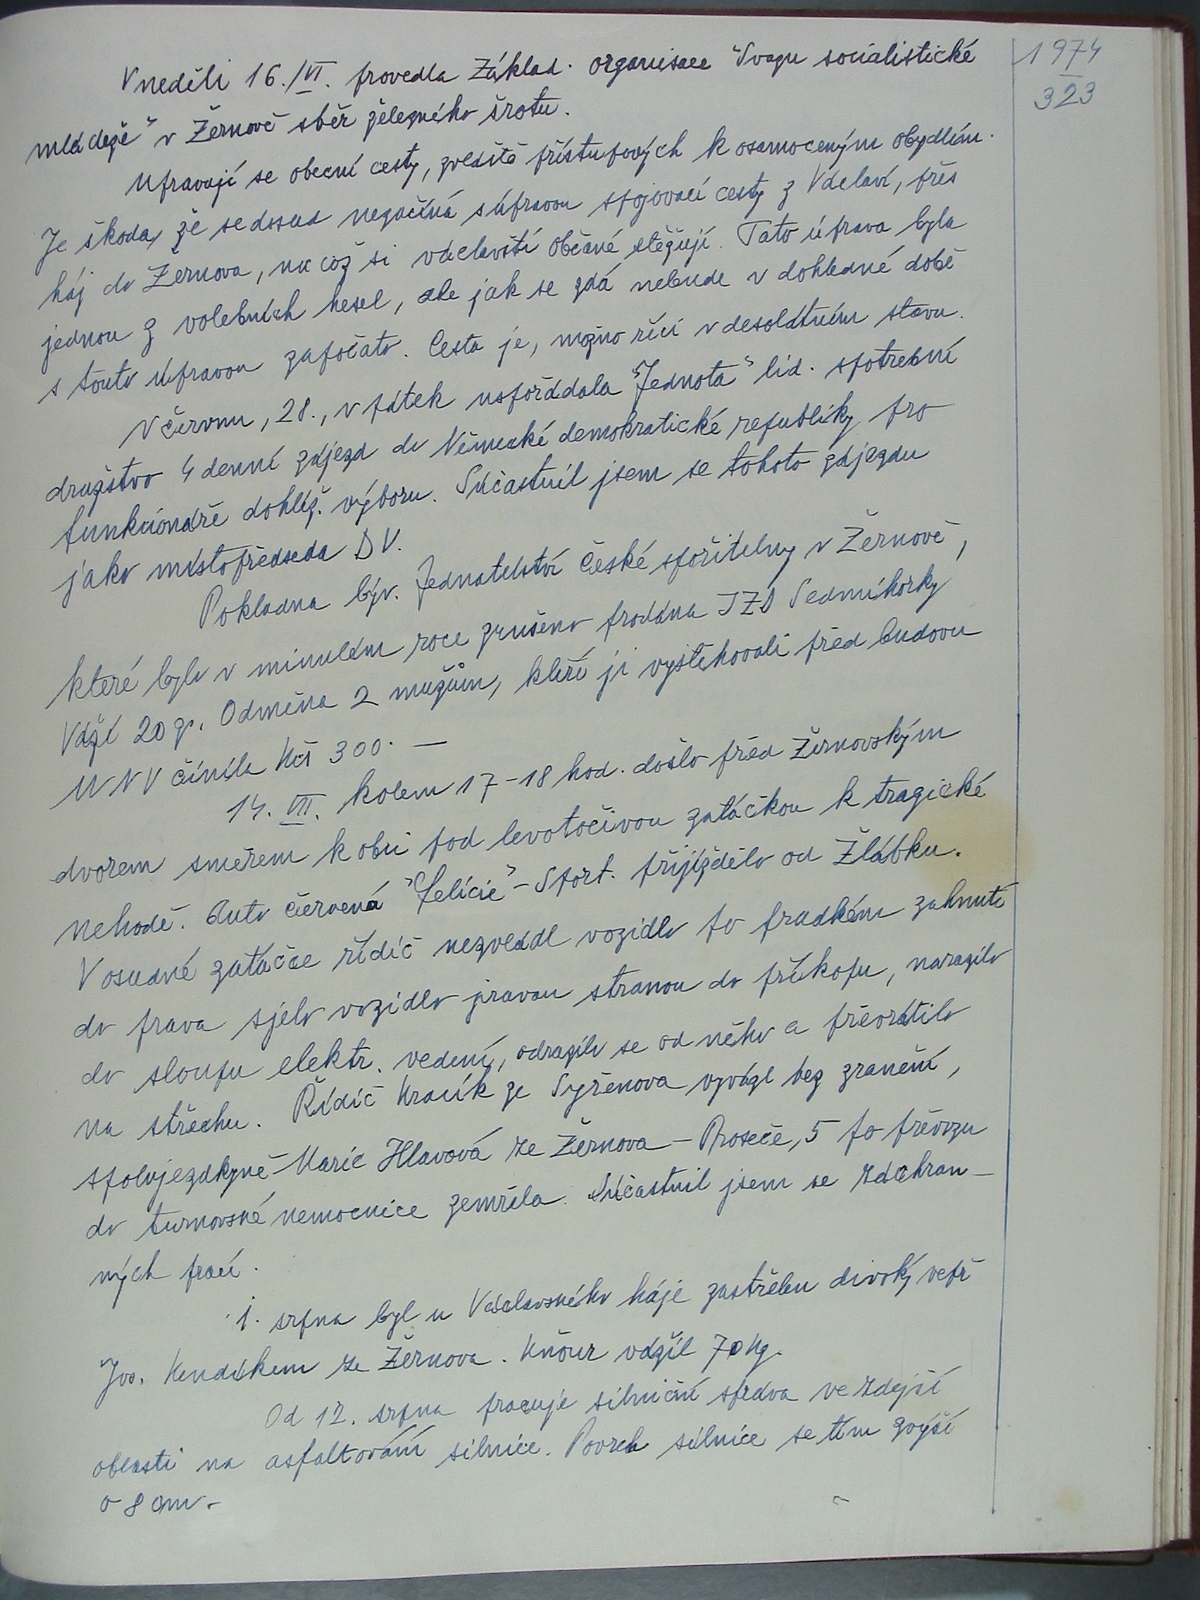 1974
323
V neděli 16./VI. provedla Základ. organisace "Svazu socialistické
mládeže" v Žernově sběr železného šrotu.
Upravují se obecní cesty, zvláště přístupových k osamoceným obydlím.
Je škoda, že se dosud nezačíná s úpravou spojovací cesty z Václaví, přes
háj do Žernova, na což si václavští občané stěžují. Tato úprava byla
jednou z volebních hesel, ale jak se zdá nebude v dohledné době
s touto úpravou započato. Cesta je, možno říci v desolátním stavu.
V červnu, 28., v pátek uspořádala "Jednota" lid. spotřební
družstvo 4 denní zájezd do Německé demokratické republiky pro
funkcionáře dohlíž. výboru. Súčastnil jsem se tohoto zájezdu
jako místopředseda DV.
Pokladna býv. Jednatelství České spořitelny v Žernově,
které bylo v minulém roce zrušeno prodána JZD Sedmihorky
Váží 20 q. Odměna 2 mužům, kteří ji vystěhovali před budovu
MNV činila Kčs 300.—
14. VII. kolem 17-18 hod. došlo před Žernovským
dvorem směrem k obci pod levotočivou zatáčkou k tragické
nehodě. Auto červená "Felicie"-Sport. přijíždělo od Žlábku.
V osudné zatáčce řidič nezvládl vozidlo po prudkém zahnutí
do prava sjelo vozidlo pravou stranou do příkopu, narazilo
do sloupu elektr. vedení, odrazilo se od něho a převrátilo
na střechu. Řidič Kracík ze Syřenova vyvázl bez zranění,
spolujezdkyně Marie Hlavová ze Žernova - Proseče, 5 po převozu
do turnovské nemocnice zemřela. Súčastnil jsem se záchran-
ných prací.
1. srpna byl u Václavského háje zastřelen divoký vepř
Jos. Kendíkem ze Žernova. Kňour vážil 70 kg.
Od 12. srpna pracuje silniční správa ve zdejší
oblasti na asfaltování silnice. Povrch silnice se tím zvýší
o 8 cm.-